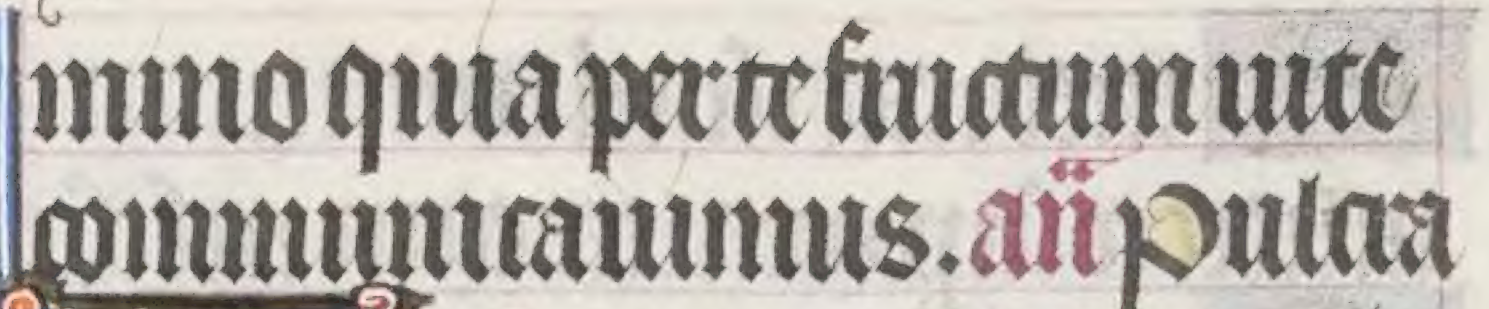 mino quia per te fructum uite
communicauimus. añ Pulcra